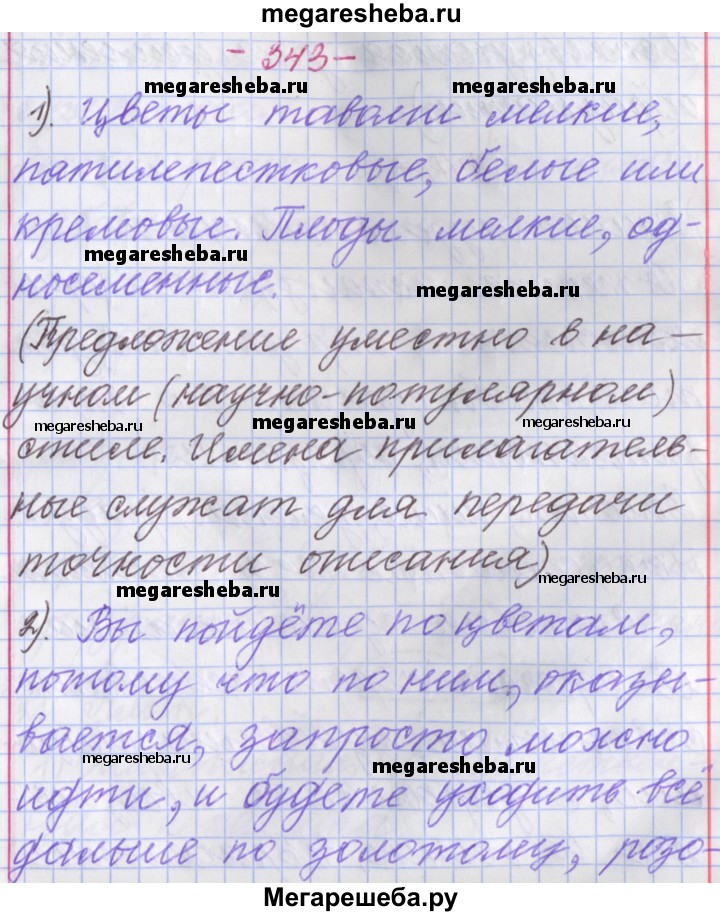 megaresheba.ru
- 343 -
megaresheba.ru megaresheba.ru
1). Цветы таволги мелкие,
пятилепестковые, белые или
кремовые. Плоды мелкие, од-
megaresheba.ru
носеменные.
megaresheba.ru
(Предложение уместно в на-
учном (научно-популярном)
megaresheba.ru megaresheba.ru megaresheba.ru
стиле. Имена прилагатель-
ные служат для передачи
точности описания)
megaresheba.ru
megaresheba.ru
2). Вы пойдёте по цветам,
потому что по ним, оказы-
вается, запросто можно
megaresheba.ru
megaresheba.ru
идти, и будете уходить всё
дальше по золотому, розо-
Мегарешеба.ру